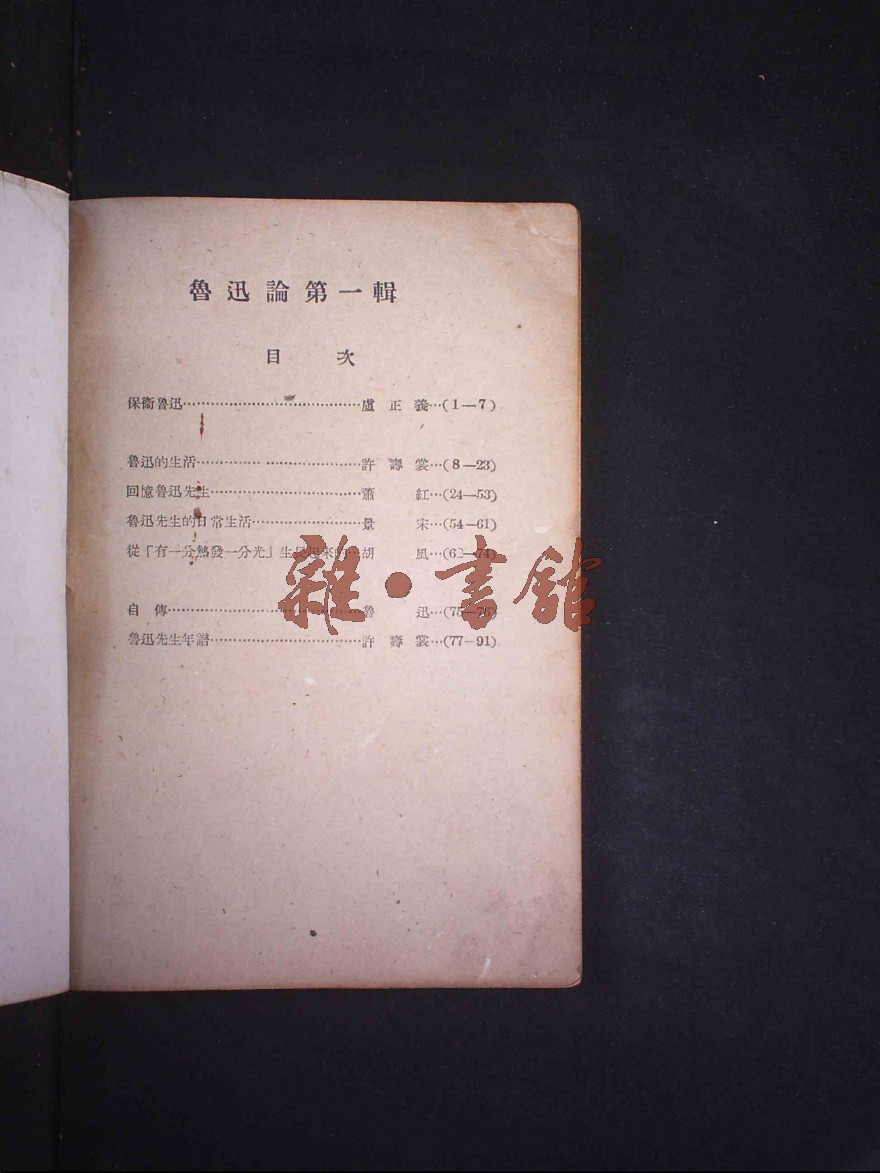 魯迅論第一輯
目 次
保衞魯迅…………………………………盧正義…(1—7)
魯迅的生活………………………………許壽裳…(8—23)
回憶魯迅先生……………………………蕭紅…(24—53)
魯迅先生的日常生活……………………景宋…(54—61)
從「有一分熱發一分光」生長起來的…胡風…(62—74)
自傳………………………………………魯迅…(75—76)
魯迅先生年譜……………………………許壽裳…(77—91)
雜·書館